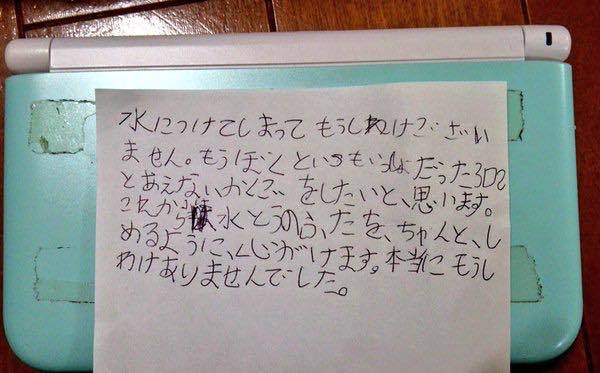 水につけてしまって もうしわけございい
ません。もうぼくといつもいっしょだった3DS
とあえないかくご、をしたいと、思います。
これからは水とうのふ、たを、ちゃんと、し
めるように、心がけます。本当にもうし
わけありませんでした。